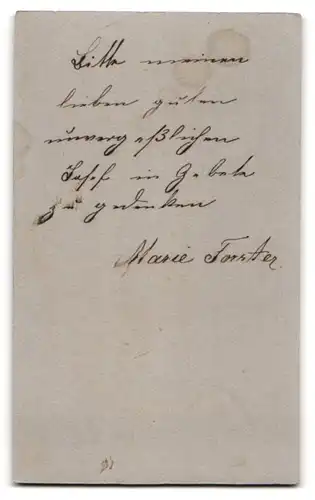 Bitte meinen
lieben guten
unvergeßlichen
Josef in Gebete
zu gedenken
Marie Forster